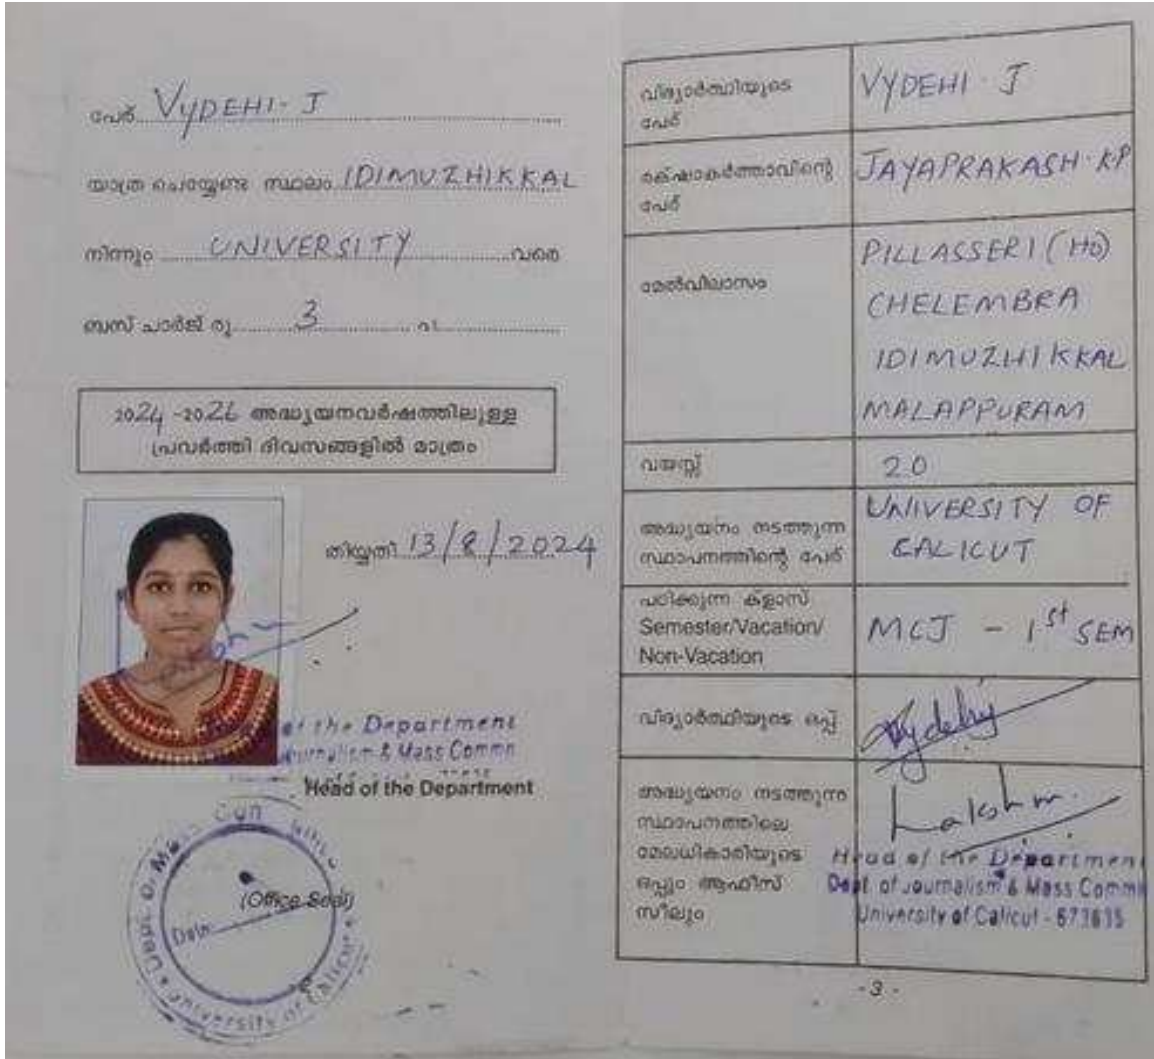 പേര് VYDEHI. J
യാത്ര ചെയ്യേണ്ട സ്ഥലം IDIMUZHIKKAL
നിന്നും UNIVERSITY വരെ
ബസ് ചാർജ് രൂ. 3 പ.
2024 -2026 അദ്ധ്യയനവർഷത്തിലുള്ള
പ്രവർത്തി ദിവസങ്ങളിൽ മാത്രം
തിയ്യതി 13/8/2024
of the Department
Journalism & Mass Commn
Head of the Department
(Office Seal)
Date:
Dept. of Mass
University of Calicut
വിദ്യാർത്ഥിയുടെ
പേര്
VYDEHI. J
രക്ഷാകർത്താവിന്റെ
പേര്
JAYAPRAKASH. K.P
മേൽവിലാസം
PILLASSERI (HO)
CHELEMBRA
IDIMUZHIKKAL
MALAPPURAM
വയസ്സ്
20
അദ്ധ്യയനം നടത്തുന്ന
സ്ഥാപനത്തിന്റെ പേര്
UNIVERSITY OF
CALICUT
പഠിക്കുന്ന ക്ളാസ്
Semester/Vacation/
Non-Vacation
MCJ - 1st SEM
വിദ്യാർത്ഥിയുടെ ഒപ്പ്
Vydehi
അദ്ധ്യയനം നടത്തുന്ന
സ്ഥാപനത്തിലെ
മേലധികാരിയുടെ
ഒപ്പും ആഫീസ്
സീലും
Lakshm
Head of the Department
Dept. of Journalism & Mass Commn
University of Calicut - 673635
- 3 -